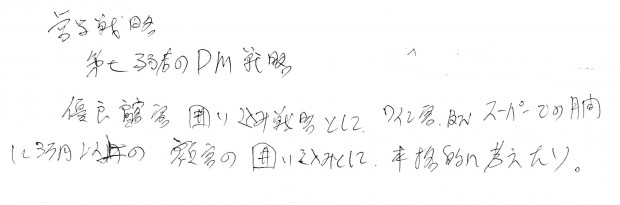 営業戦略
第七 弱者のDM戦略
優良顧客 囲い込み戦略として、ワイン客、及び スーパーでの月間
に3万円以上の 顧客の 囲い込みとして、本格的に考えたい。